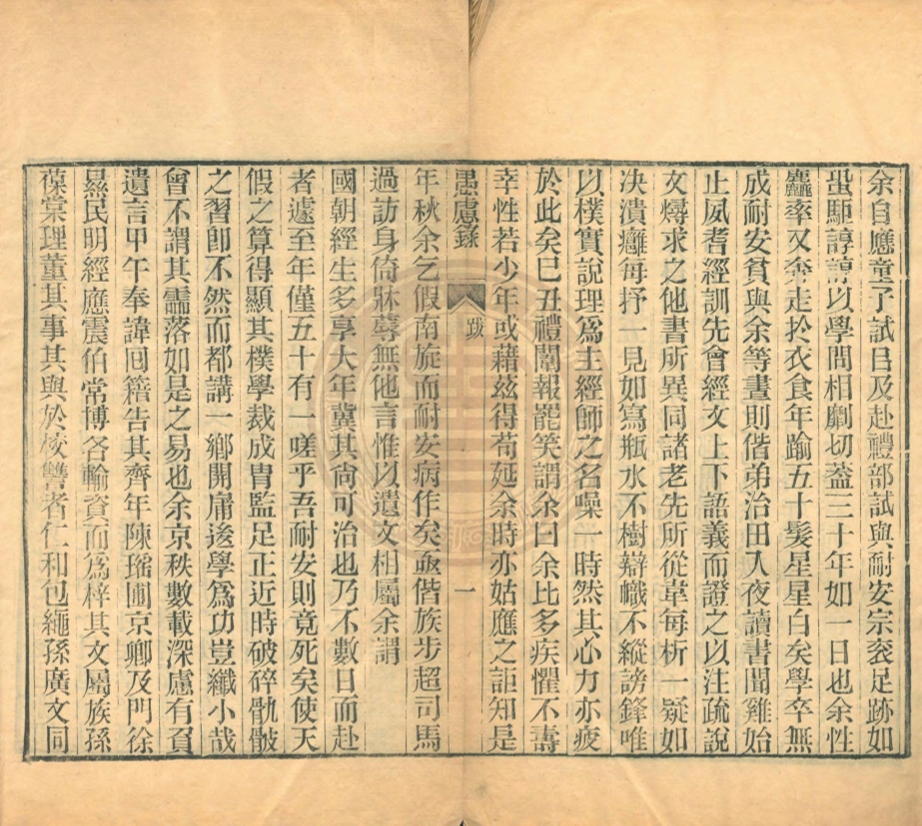 余自應童子試日及赴禮部試與耐安宗袞足跡如
蛩駏諄諄以學問相劘切葢三十年如一日也余性
麤率又奔走於衣食年踰五十髮星星白矣學卒無
成耐安貧與余等晝則偕弟治田入夜讀書聞雞始
止夙耆經訓先會經文上下語義而證之以注疏說
文燖求之他書所異同諸老先所從辜每析一疑如
决潰癰每抒一見如寫瓶水不樹辯幟不縱謗鋒唯
以樸實說理爲主經師之名噪一時然其心力亦疲
於此矣已丑禮闈報罷笑謂余曰余比多疾懼不壽
幸性若少年或藉兹得苟延余時亦姑應之詎知是
愚慮錄 跋 一
年秋余乞假南旋而耐安病作矣亟偕族步超司馬
過訪身倚牀蓐無他言惟以遺文相屬余謂
國朝經生多享大年冀其尙可治也乃不數日而赴
者遽至年僅五十有一嗟乎吾耐安則竟死矣使天
假之算得顯其樸學裁成胄監足正近時破碎骫骳
之習卽不然而都講一鄉開牗後學爲功豈纖小哉
曾不謂其霝落如是之易也余京秩數載深慮有負
遺言甲午奉諱囘籍告其齊年陳瑶圃京卿及門徐
㬎民明經應震伯常博各輸資而爲梓其文屬族孫
葆棠理董其事其與於校讐者仁和包繩孫廣文同